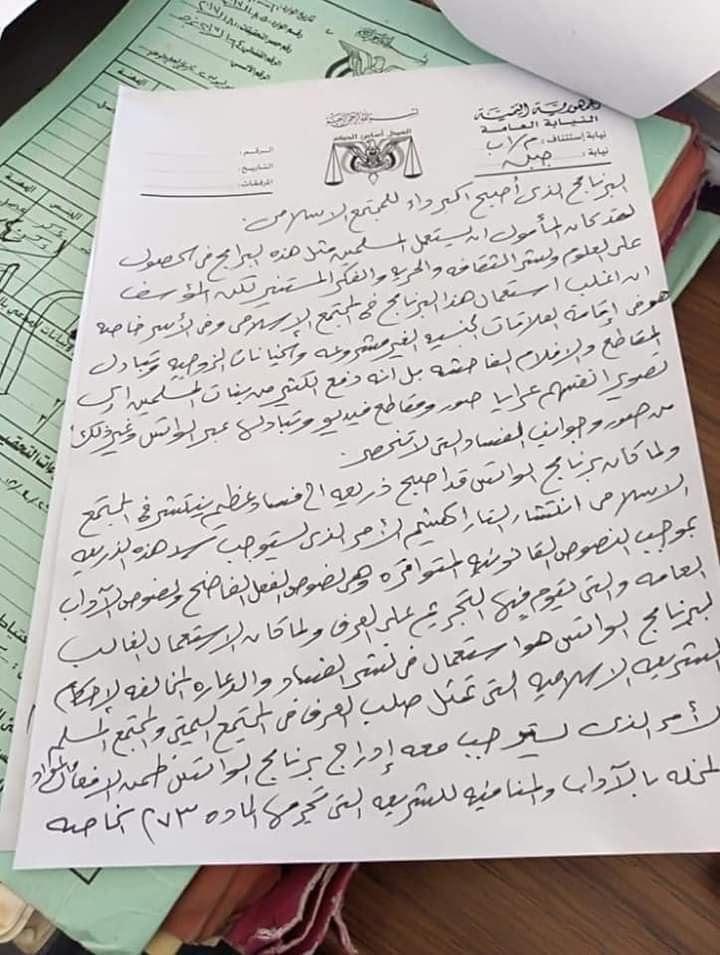 الجمهورية اليمنية
النيابة العامة
نيابة إستئناف: م/اب
نيابة: جبله
بسم الله الرحمن الرحيم
العدل أساس الحكم
الرقم:
التاريخ:
المرفقات:
البرنامج الذي أصبح اكبر داء للمجتمع الاسلامي.
لقد كان المأمول ان يستعمل المسلمين مثل هذه البرامج في الحصول
على العلوم ونشر الثقافه والحريه والفكر المستنير لكن المؤسف
ان اغلب استعمال هذا البرنامج في المجتمع الإسلامي وفي الأسر خاصه
هو في إقامة العلاقات الجنسيه الغير مشروعه والخيانات الزوجيه وتبادل
المقاطع والافلام الفاحشه بل انه دفع الكثير من بنات المسلمين إلى
تصوير انفسهم عرايا صور ومقاطع فيديو وتبادلها عبر الواتس وغير ذلك
من صور وجوانب الفساد التي لا تنحصر.
ولما كان برنامج الواتس قد اصبح ذريعه الى فساد عظيم ينتشر في المجتمع
الاسلامي انتشار النار الهشيم الأمر الذي يستوجب سد هذه الذريعه
بموجب النصوص القانونيه المتوافره وهي نصوص الفعل الفاضح ونصوص الآداب
العامه والتي يقوم فيها التجريم على العرف ولما كان الاستعمال الغالب
لبرنامج الواتس هو استعمال في نشر الفساد والدعاره المخالفه لإحكام
الشريعه الاسلاميه التي تمثل صلب العرف في المجتمع اليمني والمجتمع المسلم
الأمر الذي يستوجب معه إدراج برنامج الواتس ضمن الافعال والمواد
المخله بالآداب والمنافيه للشريعه التي تجرمها الماده ٢٧٣ الخاصه